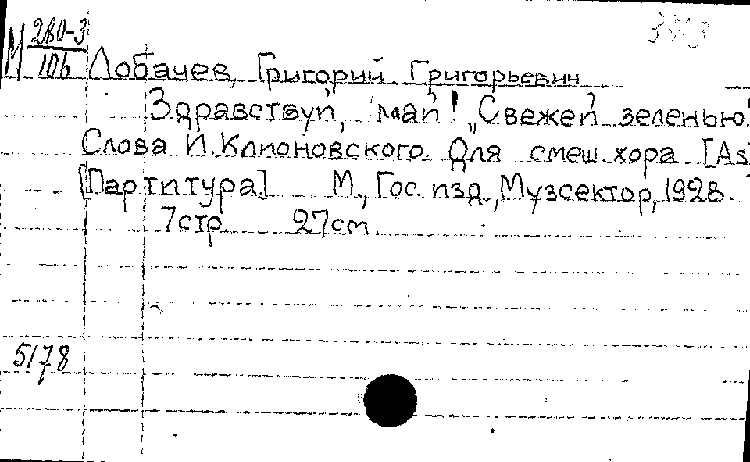 М 280-3
106
Лобачев, Григорий Григорьевич
Здравствуй, май! „Свежей зеленью
Слова И. Клионовского. Для смеш. хора [As
[Партитура] М., Гос. изд., Музсектор, 1928.
7 стр 27 см
5178